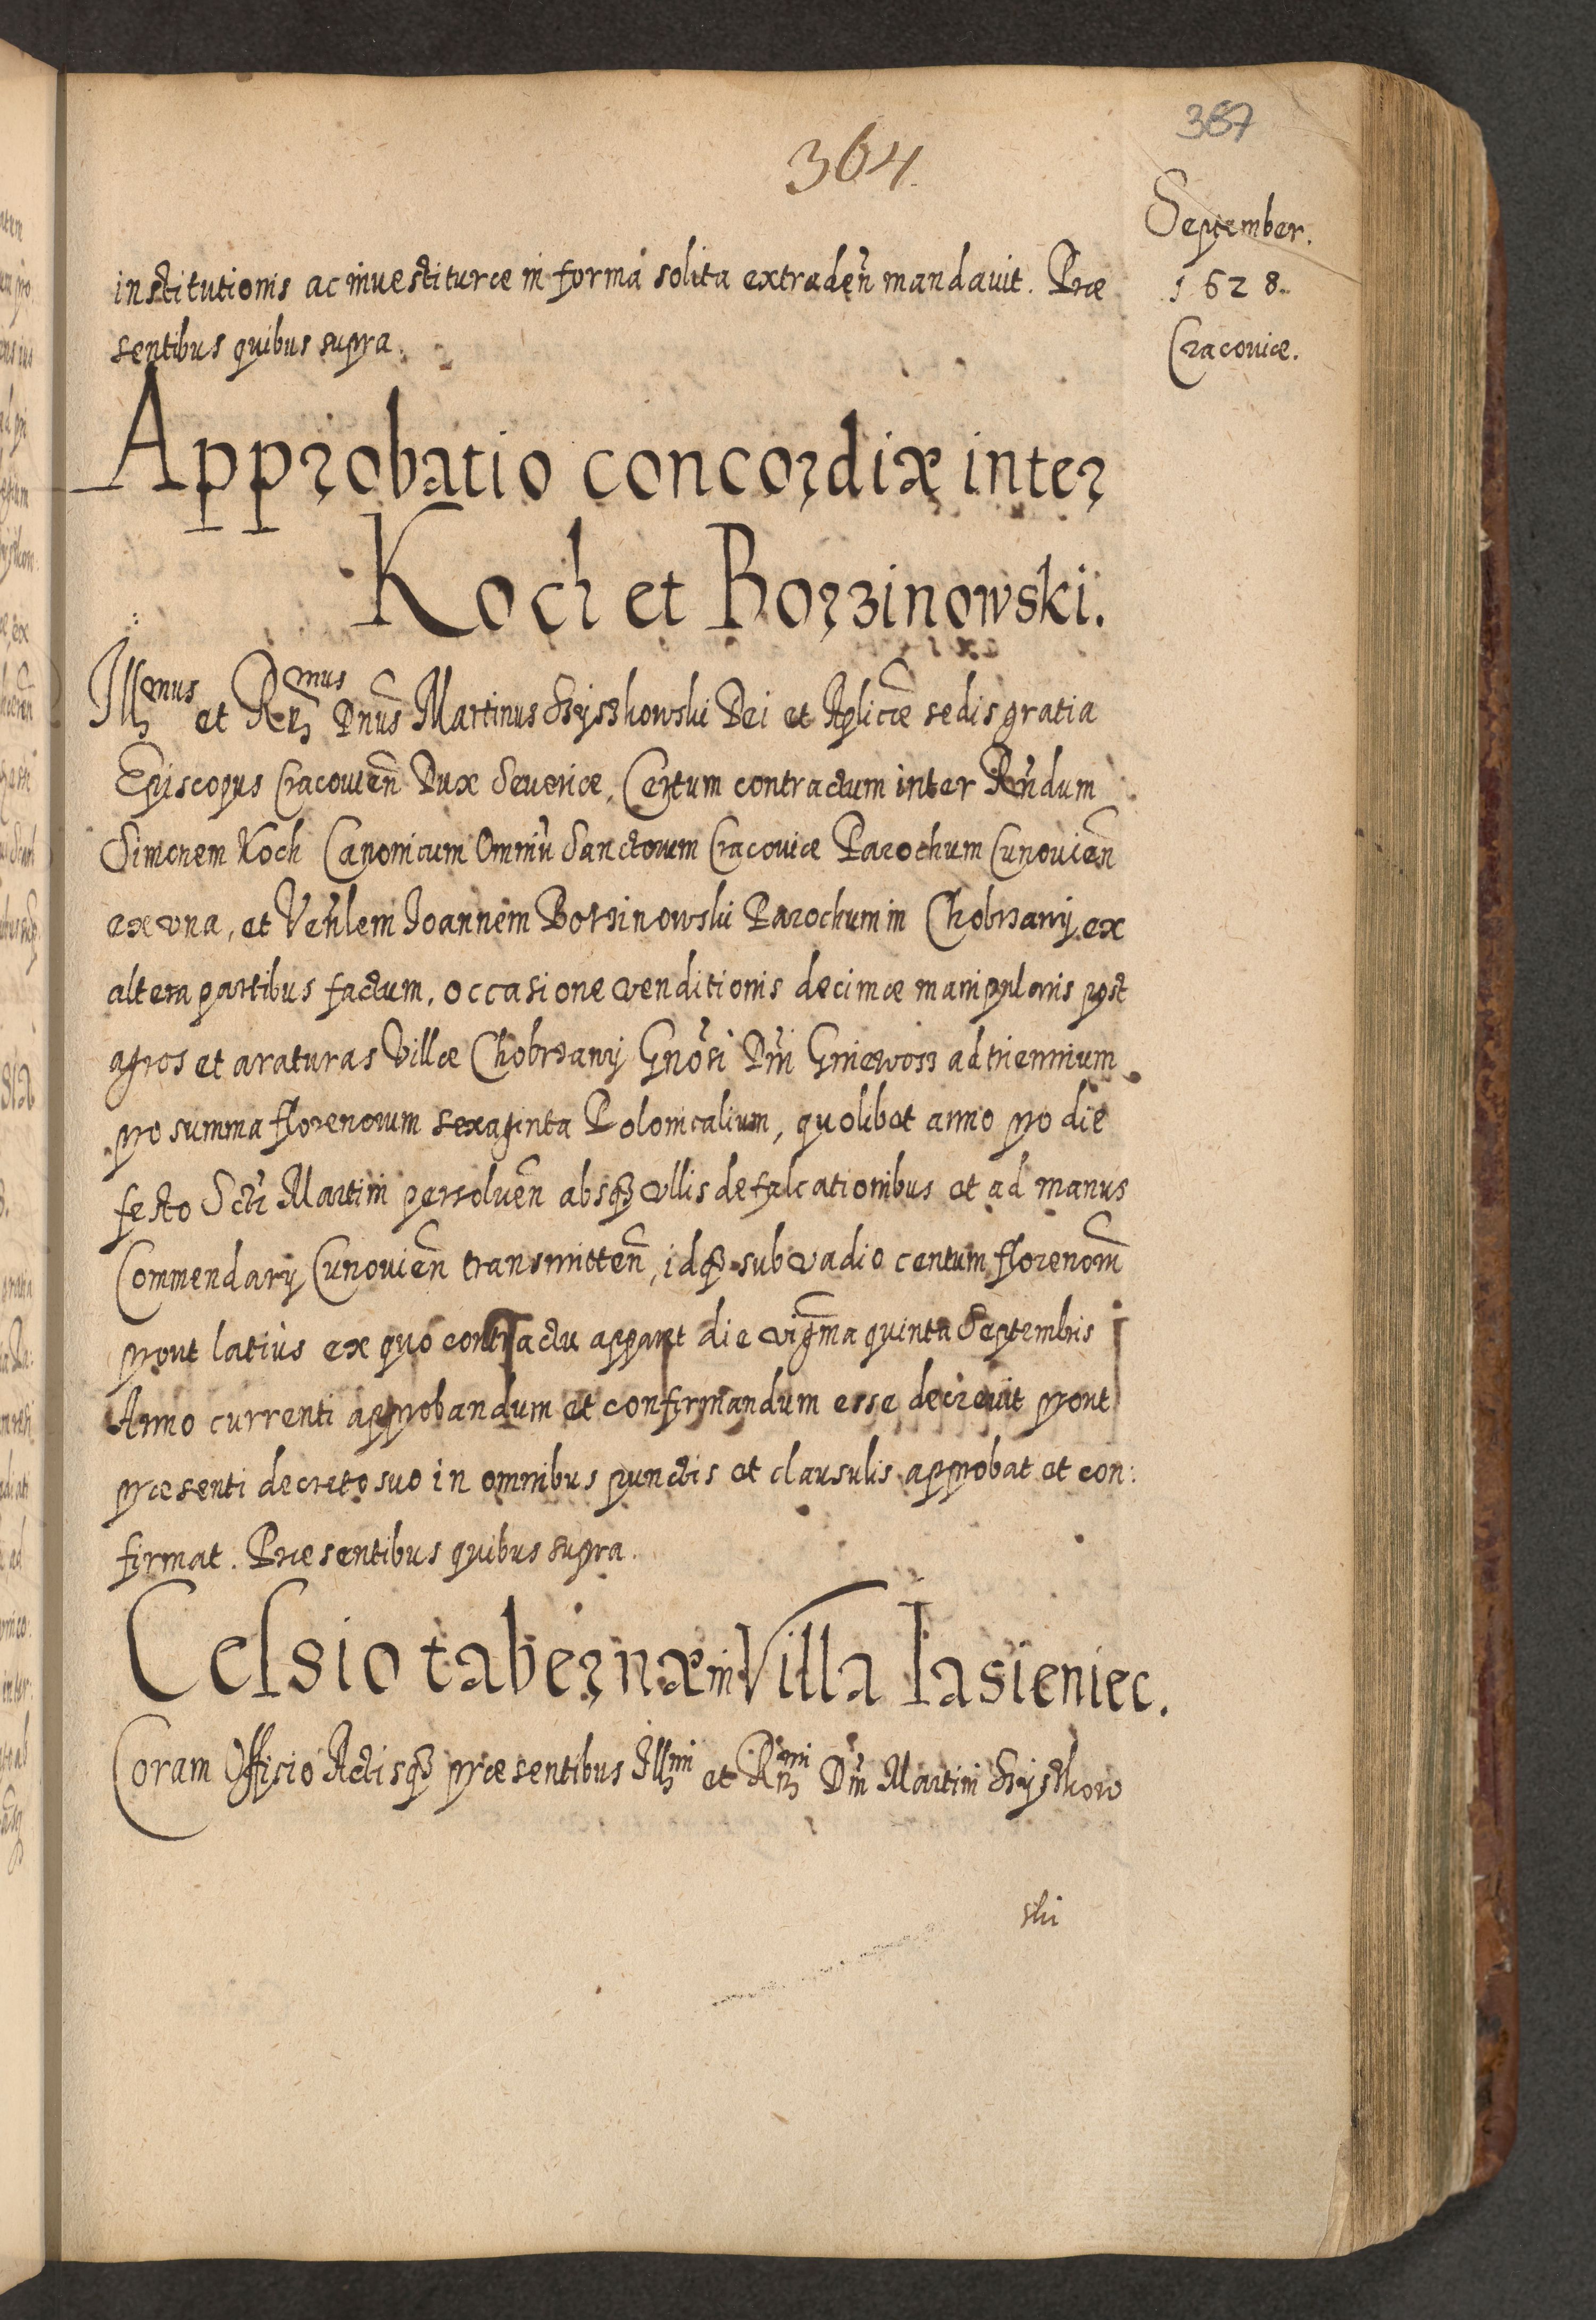 364.
387
September.
1628.
Cracoviæ.
institutionis ac investituræ in forma solita extraden̄ mandavit. Præ
sentibus quibus supra.
Approbatio concordiæ inter
Koch et Borzinowski.
Illmus et Rmus Dnus Martinus Szyszkowski Dei et Aplicæ sedis gratia
Episcopus Cracovien̄ Dux Severiæ, Certum contractum inter Rndum
Simonem Koch Canonicum Omniū Sanctorum Cracoviæ Parochum Cunovien̄
ex una, et Venlem Joannem Borzinowski Parochum in Chobrzany ex
altera partibus factum, occasione venditionis decimæ manipularis post
agros et araturas Villæ Chobrzany Gnosi Dni Gniewosz ad triennium
pro summa florenorum sexaginta Polonicalium, quolibet anno pro die
festo Scti Martini persolven̄ absq3 ullis defalcationibus et ad manus
Commendarij Cunovien̄ transmitten̄, idq3 sub vadio centum florenorum̄
prout latius ex quo contractu apparet die vigma quinta Septembris
Anno currenti approbandum et confirmandum esse decrevit prout
præsenti decreto suo in omnibus punctis et clausulis approbat et con:
firmat. Præsentibus quibus supra.
Cessio tabernæ in Villa Iasieniec.
Coram Officio Actisq3 præsentibus Illmi et Rmi Dni Martini Szyszkow
ski